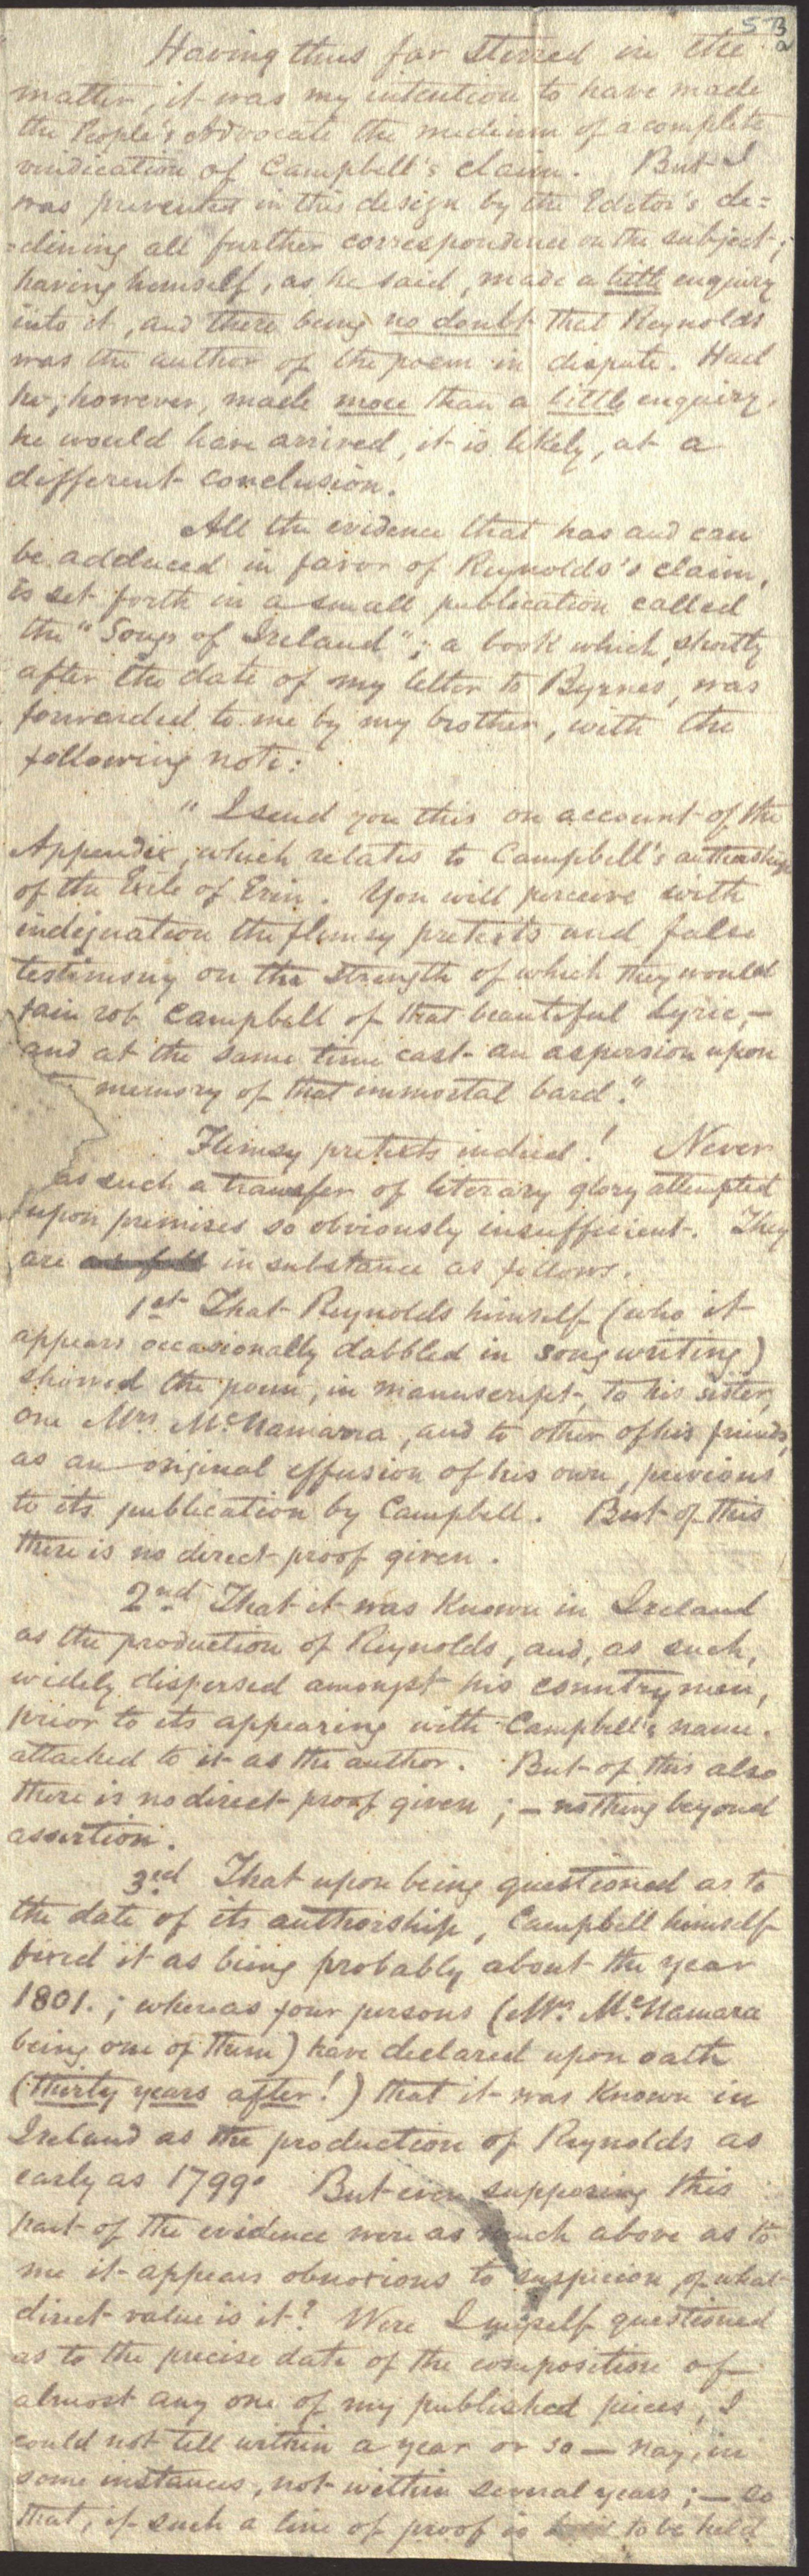 53
a
Having thus far stirred in the
matter, it was my intention to have made
the People's Advocate the medium of a complete
vindication of Campbell's claim. But I
was prevented in this design by the Editor's de=
=clining all further correspondence on the subject;
having himself, as he said, made a little enquiry
into it, and there being no doubt that Reynolds
was the author of the poem in dispute. Had
he, however, made more than a little enquiry,
he would have arrived, it is likely, at a
different conclusion.
All the evidence that has and can
be adduced in favor of Reynolds's claim,
is set forth in a small publication called
the "Songs of Ireland"; a book which, shortly
after the date of my letter to Byrnes, was
forwarded to me by my brother, with the
following note:
"I send you this on account of the
Appendix, which relates to Campbell's authorship
of the Exile of Erin. You will perceive with
indignation the flimsy pretexts and false
testimony on the strength of which they would
fain rob Campbell of that beautiful Lyric,—
and at the same time cast an aspersion upon
memory of that immortal bard."
Flimsy pretexts indeed! Never
as such a transfer of literary glory attempted
upon premises so obviously insufficient. They
are in substance as follows.
1st That Reynolds himself (who it
appears occasionally dabbled in song writing)
showed the poem, in manuscript, to his sister,
one Mrs McNamarra, and to other of his friends,
as an original effusion of his own, previous
to its publication by Campbell. But of this
there is no direct proof given.
2nd That it was Known in Ireland
as the production of Reynolds, and, as such,
widely dispersed amongst his countrymen,
prior to its appearing with Campbell's name
attached to it as the author. But of this also
there is no direct proof given; — nothing beyond
assertion.
3rd That upon being questioned as to
the date of its authorship, Campbell himself
fixed it as being probably about the year
1801.; whereas four persons (Mrs McNamara
being one of them) have declared upon oath
(thirty years after!) that it was Known in
Ireland as the production of Reynolds as
early as 1799. But even supposing this
part of the evidence were as much above as to
me it appears obnoxious to suspicion, of what
direct value is it? Were I myself questioned
as to the precise date of the composition of
almost any one of my published pieces, I
could not tell within a year or so — nay, in
some instances, not within several years; — so
that, if such a line of proof is to be held